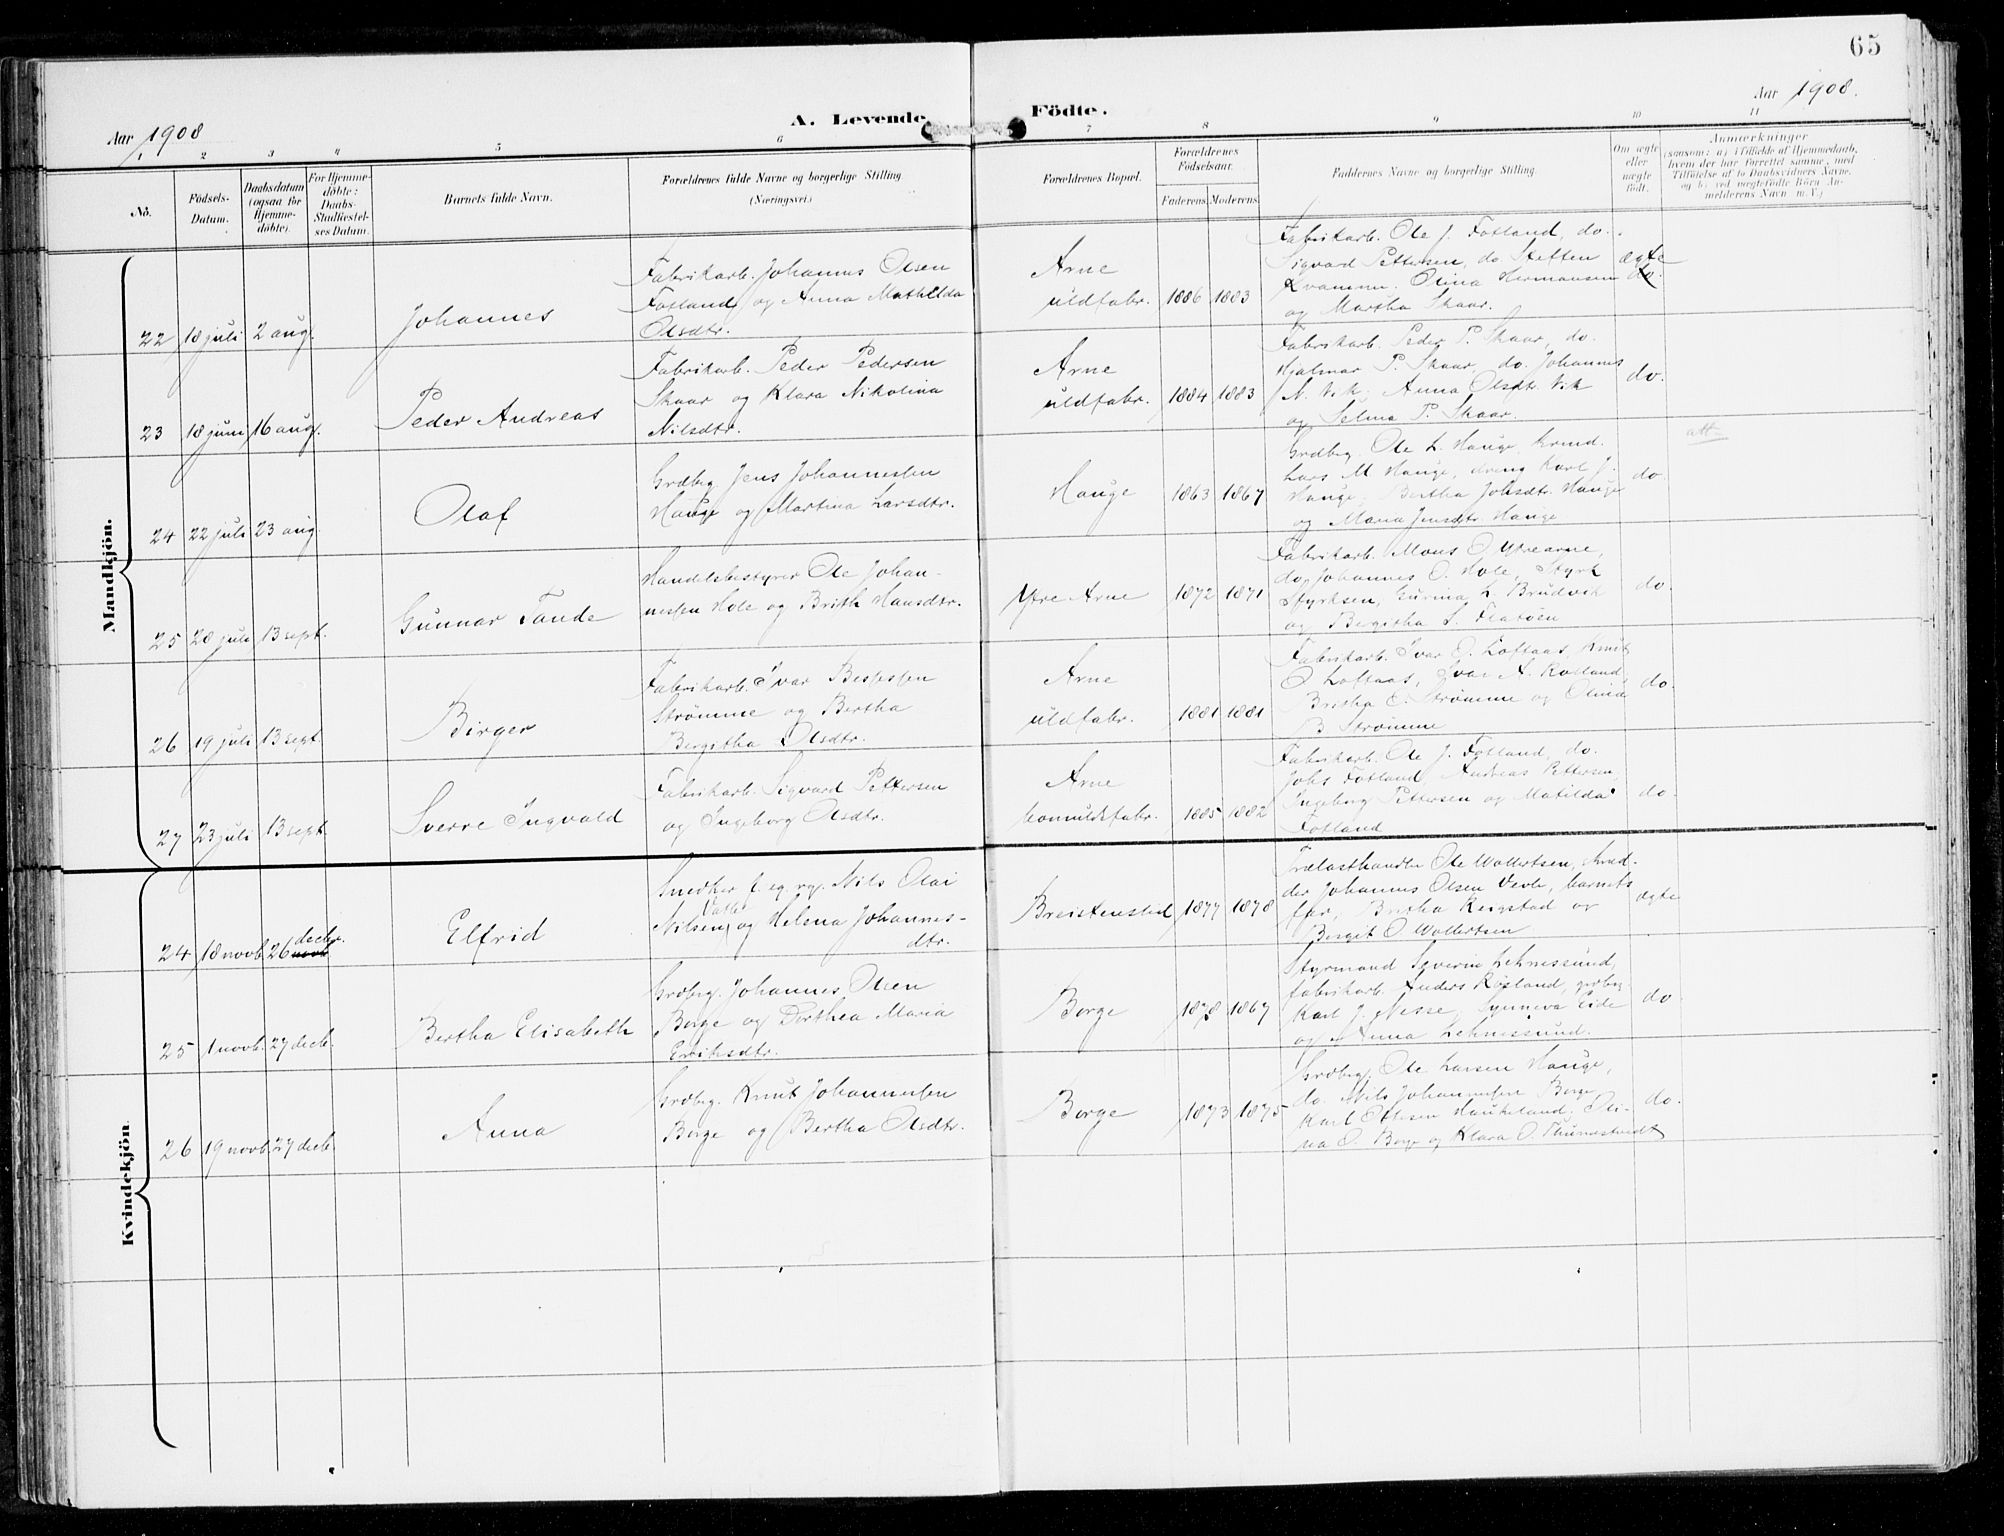 65
Aar 1908
A. Levende
Födte.
Aar 1908.
1 2 3 4 5 6 7 8 9 10 11
No.
Födsels-Datum.
Daabsdatum (ogsaa for Hjemmedöbte).
For Hjemmedöbte: Daabs-Stadfæstelses Datum.
Barnets fulde Navn.
Forældrenes fulde Navne og borgerlige Stilling.
(Næringsvei.)
Forældrenes Bopæl.
Forældrenes Födselsaar.
Faderens. Moderens.
Faddernes Navne og borgerlige Stilling.
Om ægte eller uægte födt.
Anmærkninger
(saasom: a) i Tilfælde af Hjemmedaab, hvem der har forrettet samme, med Tilföielse af to Daabsvidners Navne, og b) ved uægtefödte Börn Anmelderens Navn m. V.)
Mandkjön.
22 18 juli 2 aug. Johannes
Fabrikarb. Johannes Olsen
Fotland og Anna Mathilda
Olsdtr.
Arne
uldfabr. 1886 1883
Fabrikarb. Ole J. Fotland, do.
Sigvard Pettersen, do. Steffen
Kvamme. Olina Hermansen
og Martha Skaar.
ægte
do.
23 18 juni 16 aug. Peder Andreas
Fabrikarb. Peder Pedersen
Skaar og Klara Nikolina
Nilsdtr.
Arne
uldfabr. 1884 1883
Fabrikarb. Peder P. Skaar, do.
Hjalmar P. Skaar, do. Johannes
N. Vik, Anna Olsdtr. Vik
og Selma P. Skaar.
do.
att
24 22 juli 23 aug. Olaf
Grdbrg. Jens Johannessen
Hauge og Martina Larsdtr.
Hauge 1863 1867
Grdbrg. Ole L. Hauge,
Lars M Hauge, dreng Karl J.
Hauge; Bertha Johsdtr. Hauge
og Maria Jensdtr. Hauge
do.
25 20 juli 13 sept. Gunnar Tande
Handelsbestyrer Ole Johan-
nessen Hole og Brith Hansdtr.
Ytre Arne 1872 1871
Fabrikarb. Mons O. Ytrearne,
do. Johannes O. Hole, Styrk
Styrksen, Gurina L. Brudvik
og Bergitha S. Flatøen
do.
26 19 juli 13 sept. Birger
Fabrikarb. Ivar
Strømme og Bertha
Bergitha Olsdtr.
Arne
uldfabr. 1881 1881
Fabrikarb. Ivar O. Loftaas, Knut
O Loftaas, Ivar A. Rolland,
Britha E. Strømme og Olina
B Strømme
do.
27 23 juli 13 sept. Sverre Ingvald
Fabrikarb. Sigvard Pettersen
og Ingeborg Olsdtr.
Arne
bomuldsfabr. 1885 1882
Fabrikarb. Ole J. Fotland, do.
Johs Fotland, Andreas Pettersen,
Ingeborg Pettersen og Matilda
Fotland
do.
Kvindekjön.
24 18 novb. 26 novb decbr. Elfrid
Snedker f. eg. rg. Nils Olai
Nilsen Valle og Helena Johannes-
dtr.
Breistensted 1877 1878
Trælasthandler Ole Wollertsen,
Johannes Olsen Vevle, barnets
far, Britha Reigstad og
Bergit O Wollertsen
ægte
25 1 novb. 27 decb. Bertha Elisabeth
Grdbrg. Johannes Olsen
Borge og Dorthea Maria
Eriksdtr.
Borge 1878 1867
Styrmand Severin Lehnessund,
fabrikarb. Anders Røsland, grdbrg
Karl J. Nesse, Synneva Eide
og Anna Lehnessund.
do.
26 19 novb. 27 decb. Anna
Grdbrg. Knut Johannessen
Borge og Bertha Olsdtr.
Borge 1873 1875
Grdbrg. Ole Larsen Hauge,
do. Nils Johannessen Borge
Karl Olsen Haukeland; Oli-
na O. Borge og Klara O. Thunestvedt
do.